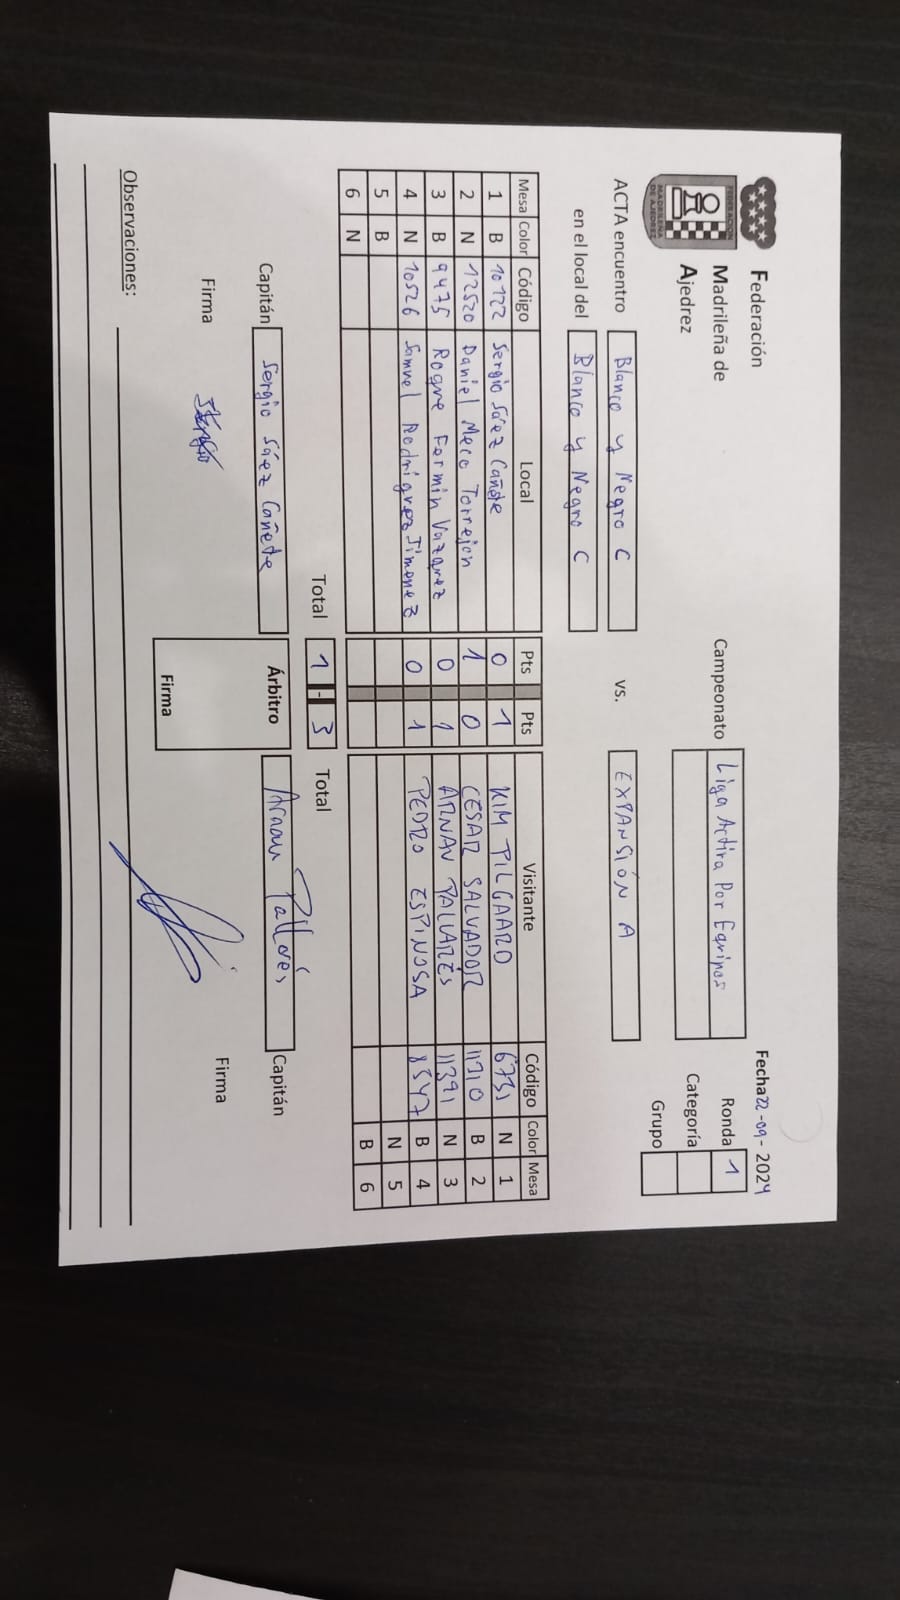 Federación
Madrileña de
Ajedrez
FEDERACION
MADRILEÑA
DE AJEDREZ
Fecha 22-09-2024
Campeonato Liga Activa Por Equipos
Ronda 1
Categoría
Grupo
ACTA encuentro Blanco y Negro C vs. EXPANSIÓN A
en el local del Blanco y Negro C
Mesa Color Código Local Pts Pts Visitante Código Color Mesa
1 B 10122 Sergio Sáez Cañete 0 1 KIM PILGAARD 6731 N 1
2 N 12520 Daniel Meco Torrejon 1 0 CESAR SALVADOR 11710 B 2
3 B 9475 Roque Fermin Vazquez 0 1 ARNAU PALLARÉS 11391 N 3
4 N 10526 Samuel Rodriguez Jimenez 0 1 PEDRO ESPINOSA 8547 B 4
5 B N 5
6 N B 6
Total 1 - 3 Total
Capitán Sergio Sáez Cañete Árbitro Arnau Pallarés Capitán
Firma Firma Firma
Observaciones: